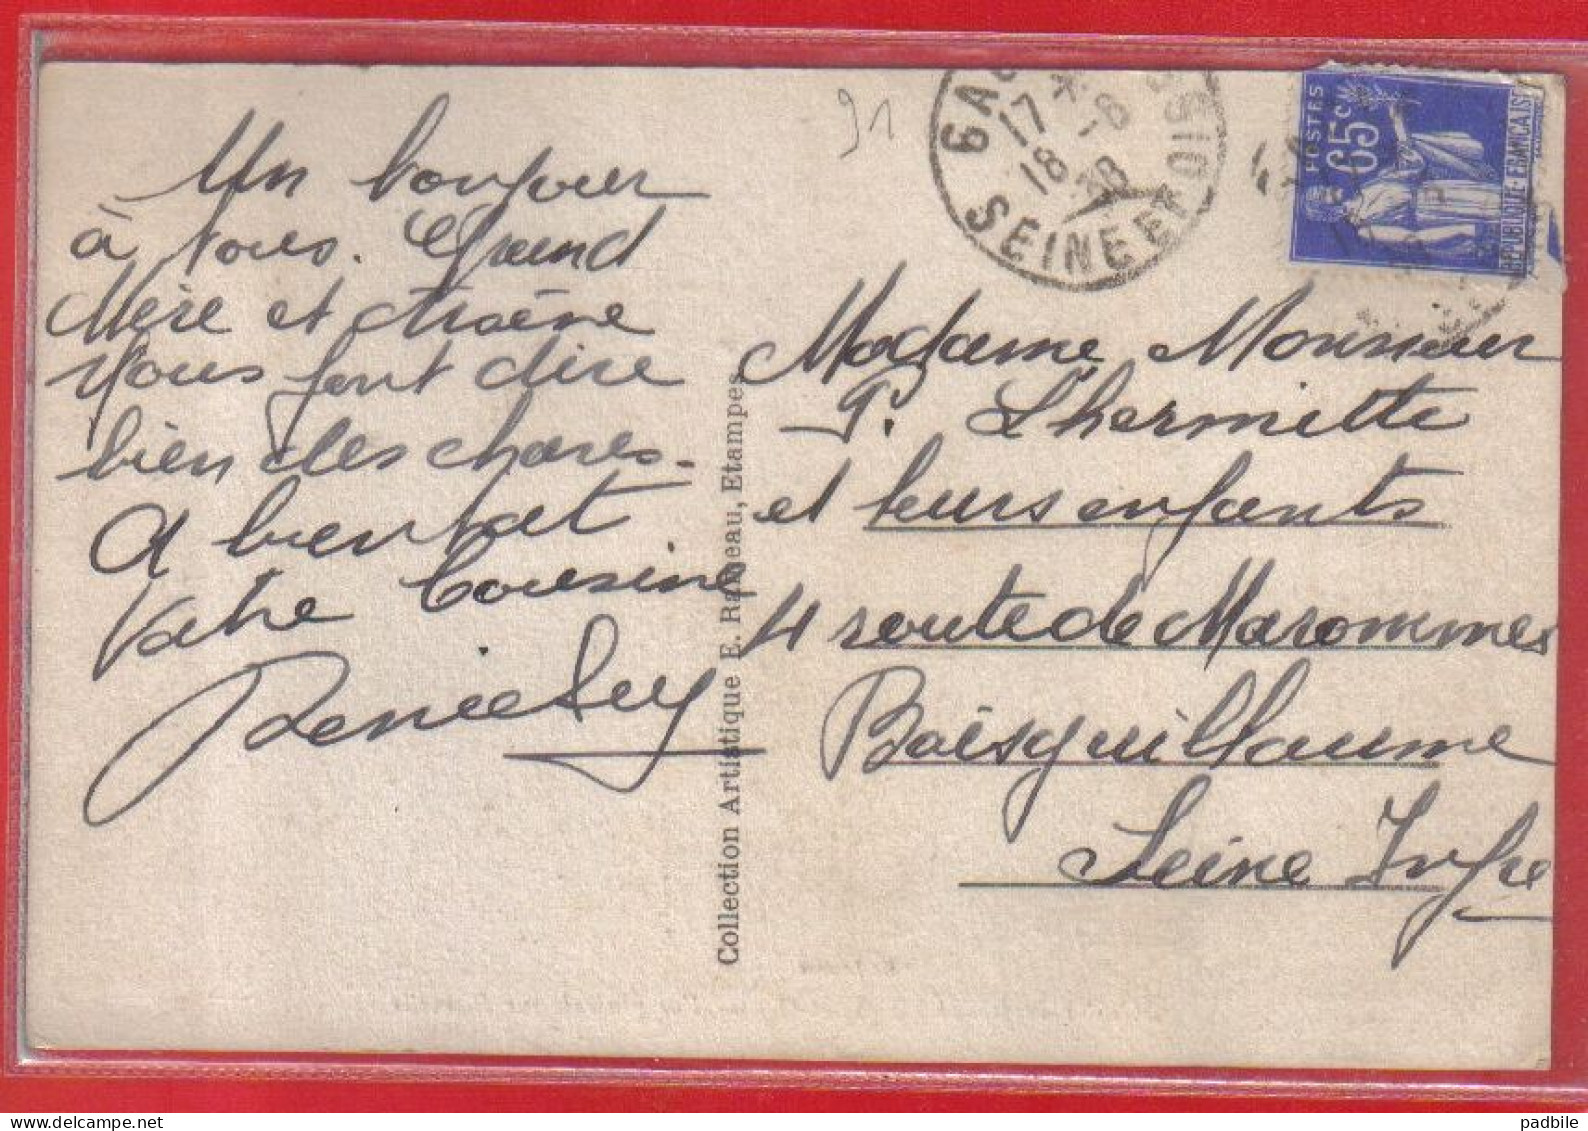 Un bonjour
à tous. Grand
Mère et
Vous font dire
bien des choses.
A bientot
Votre Cousine
Collection Artistique E. Rameau, Etampes
91
17 * 8
18
SEINE ET OISE
POSTES
65c
REPUBLIQUE FRANÇAISE
Madame, Monsieur
P. Lhermitte
et leurs enfants
4 route de Maromme
Boisguillaume
Seine Infre
padbile